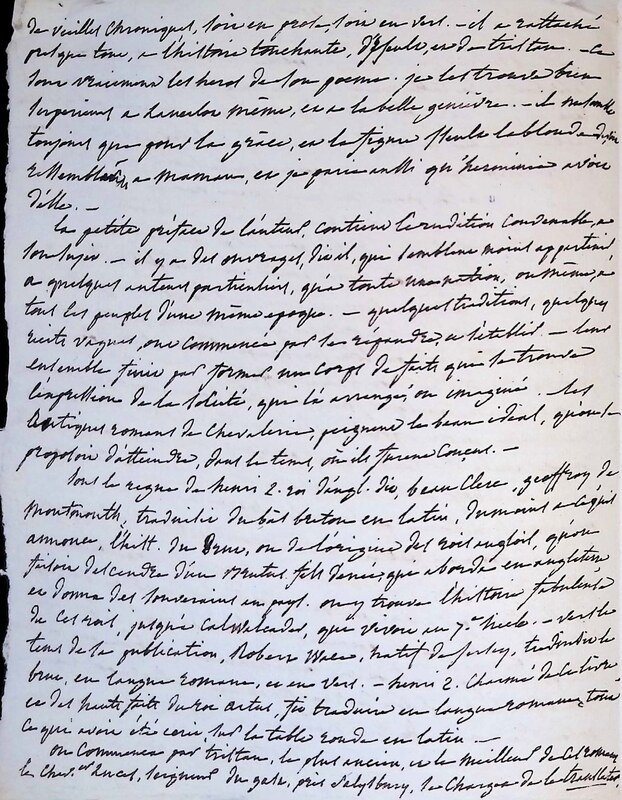 de vieilles chroniques, soit en prose, soit en vers. – il a rattaché
presque tout, a l'histoire touchante, d'yseult, et de tristan. – Ce
sont vraiment les heros de son poeme. je les trouve bien
superieurs a Lancelot même, et a la belle genièvre. – il me semble
toujours que pour la grâce, et la figure yseult la blonde
a maman, et je pense aussi qu'herminie avoit
d'elle. –
La petite préface de l'auteur, contient l'erudition convenable, a
son sujet. – il y a des ouvrages, dit il, qui semblent moins appartenir
a quelques auteurs particuliers, qu'a toute une nation, ou même, a
tous les peuples d'une même epoque. – quelques traditions, quelques
recits vagues, ont commencé par se répandre, et s'etablir. – leur
ensemble finit par former un corps de faits qui se trouve
l'expression de la société, qui l'a arrangé, ou imaginé. – les
antiques romans de chevalerie, peignent le beau ideal, qu'on se
proposoit d'atteindre, dans le tems, où ils furent conçus. –
Sous le regne de henri 2. roi d'angl. dit, beau Clerc, geoffroy de
Montmouth, traduisit du bas breton en latin, du moins a ce qu'il
annonce, l'hist. du Brut, ou de l'origine des rois anglois, qu'on
faisoit descendre d'un Brutus fils d'enée, qui aborda en angleterre
et donna des souverains au pays. on y trouve l'histoire fabuleuse
de ces rois, jusqu'a Calwalader, qui vivoit au 7.e siecle. – vers le
tems de la publication, Robert Wace, natif de Jersey, traduisit le
brut, en langue romane, et en vers. – henri 2. charmé de ce livre
et des hauts faits du roi artus, fit traduire en langue romane, tout
ce qui avoit été ecrit, sur la table ronde en latin. –
on commença par tristan, le plus ancien, et le meilleur de ces romans,
le chev.er Luces, seigneur du gast, près Salysbury, se chargea de la